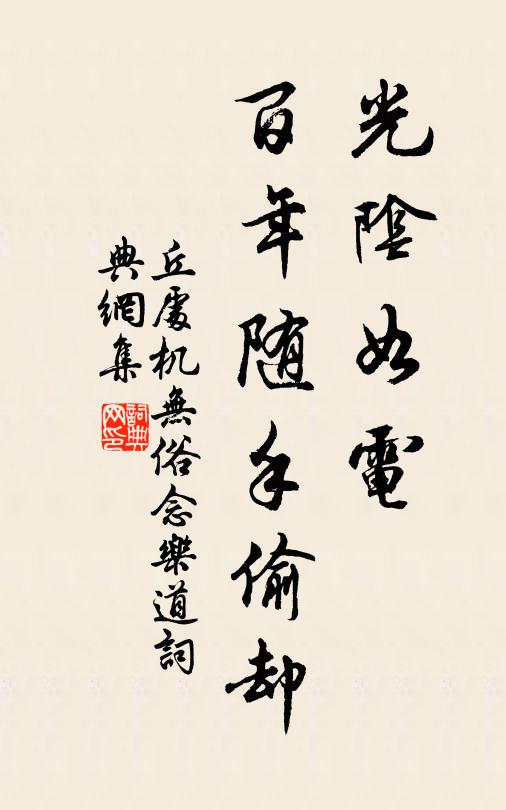 光陰如電
百年随手偷却
丘處机無俗念樂道詞
典網集
詞典
网印